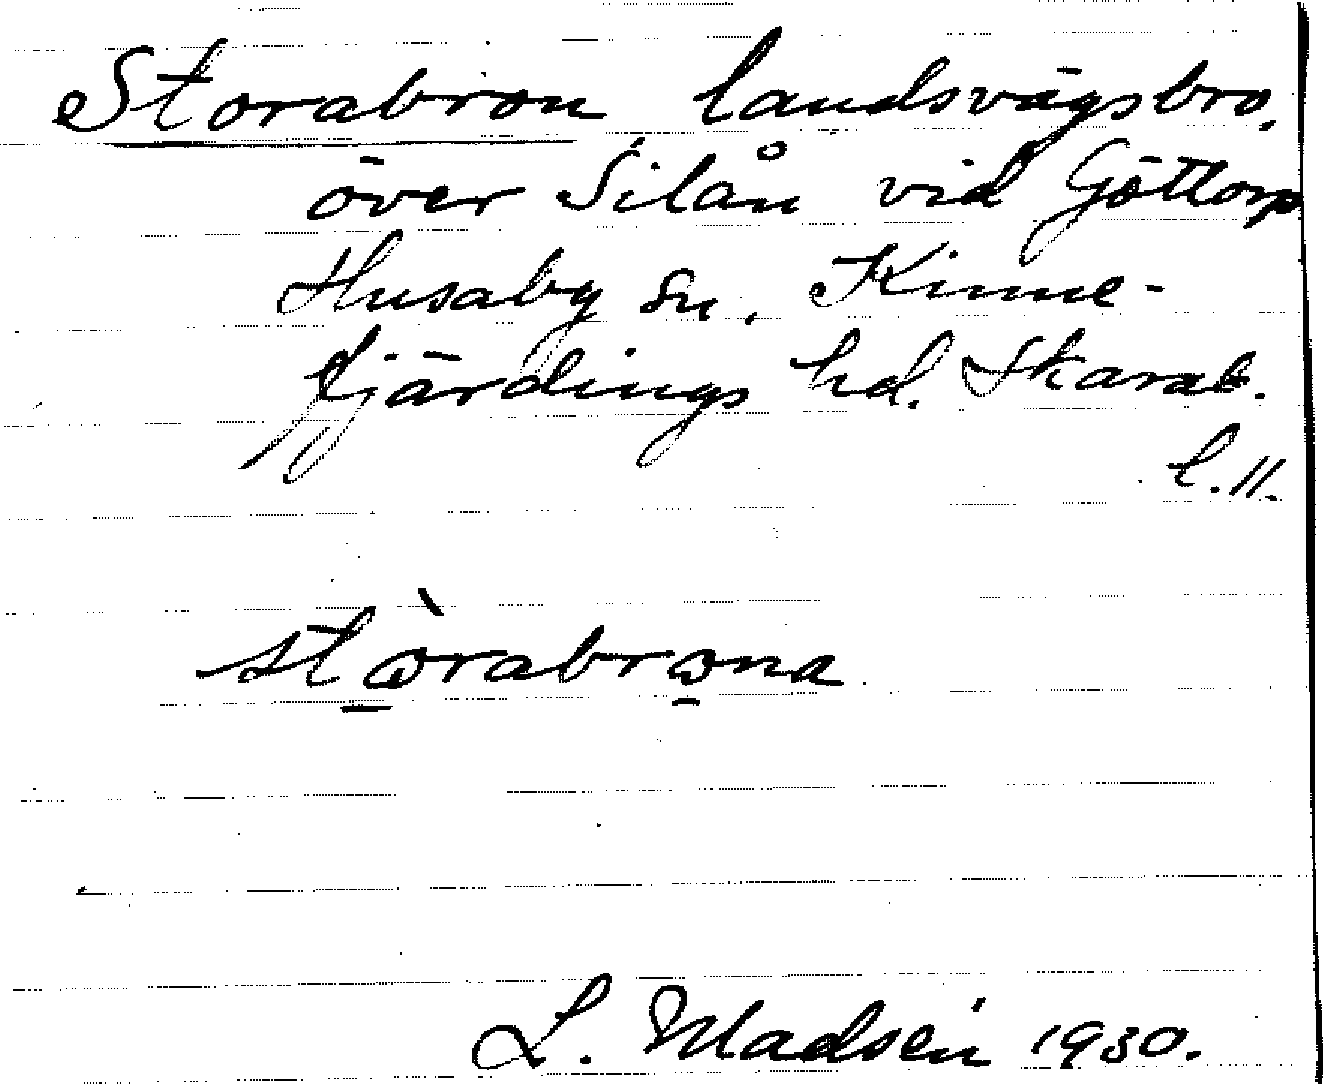 Storabron landsvägsbro.
över Silån vid Göttorp
Husaby sn. Kinne-
fjärdings hd. Skarab.
l.
stòrabrona
L. Madsen 1930.